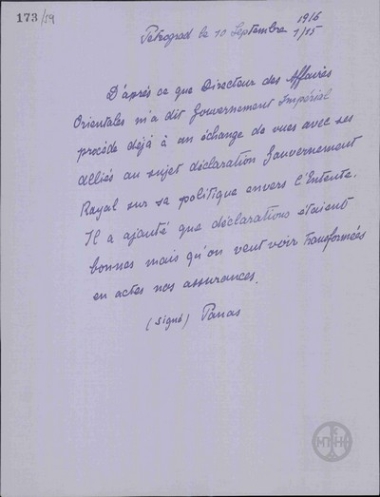 173/59
1916
Pétrograd le 10 Septembre 1/15
D'après ce que Directeur des Affaires
Orientales m'a dit Gouvernement Impérial
procède déjà à un échange de vues avec ses
Alliés au sujet déclaration Gouvernement
Royal sur se politique envers l'Entente.
Il a ajouté que déclarations étaient
bonnes mais qu'on veut voir transformées
en actes nos assurances.
(signé) Panas